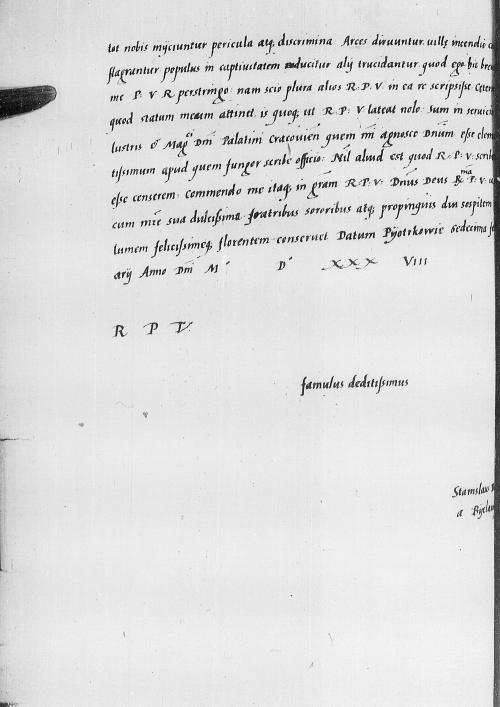 tot nobis inijciuntur pericula atq; discrimina Arces diruuntur uillę incendio
flagrantur populus in captiuitatem adducitur alij trucidantur quod ego hic
me P. V R perstringo: nam scio plura alios R. P. V in ea re scripsisse
quod statum meum attinet is quoq; ut R. P. V lateat nolo: Sum in
lustris & Magci Dni Palatini Cracouien̄ quem mi agnosco Dnum esse
tissimum apud quem fungor scribe officio: Nil aliud est quod R. P. V:
esse censerem: Commendo me itaq; in gram R. P. V. Dnus Deus Rma P. V.
cum mre sua dulcissima fratribus sororibus atq; propinquis diu sospitem
tumem felicissimeq; florentem conseruet Datum Pijotrkowie
arij Anno Dni M° D° XXX VIII
R P V
famulus deditissimus
Stanislaw
a